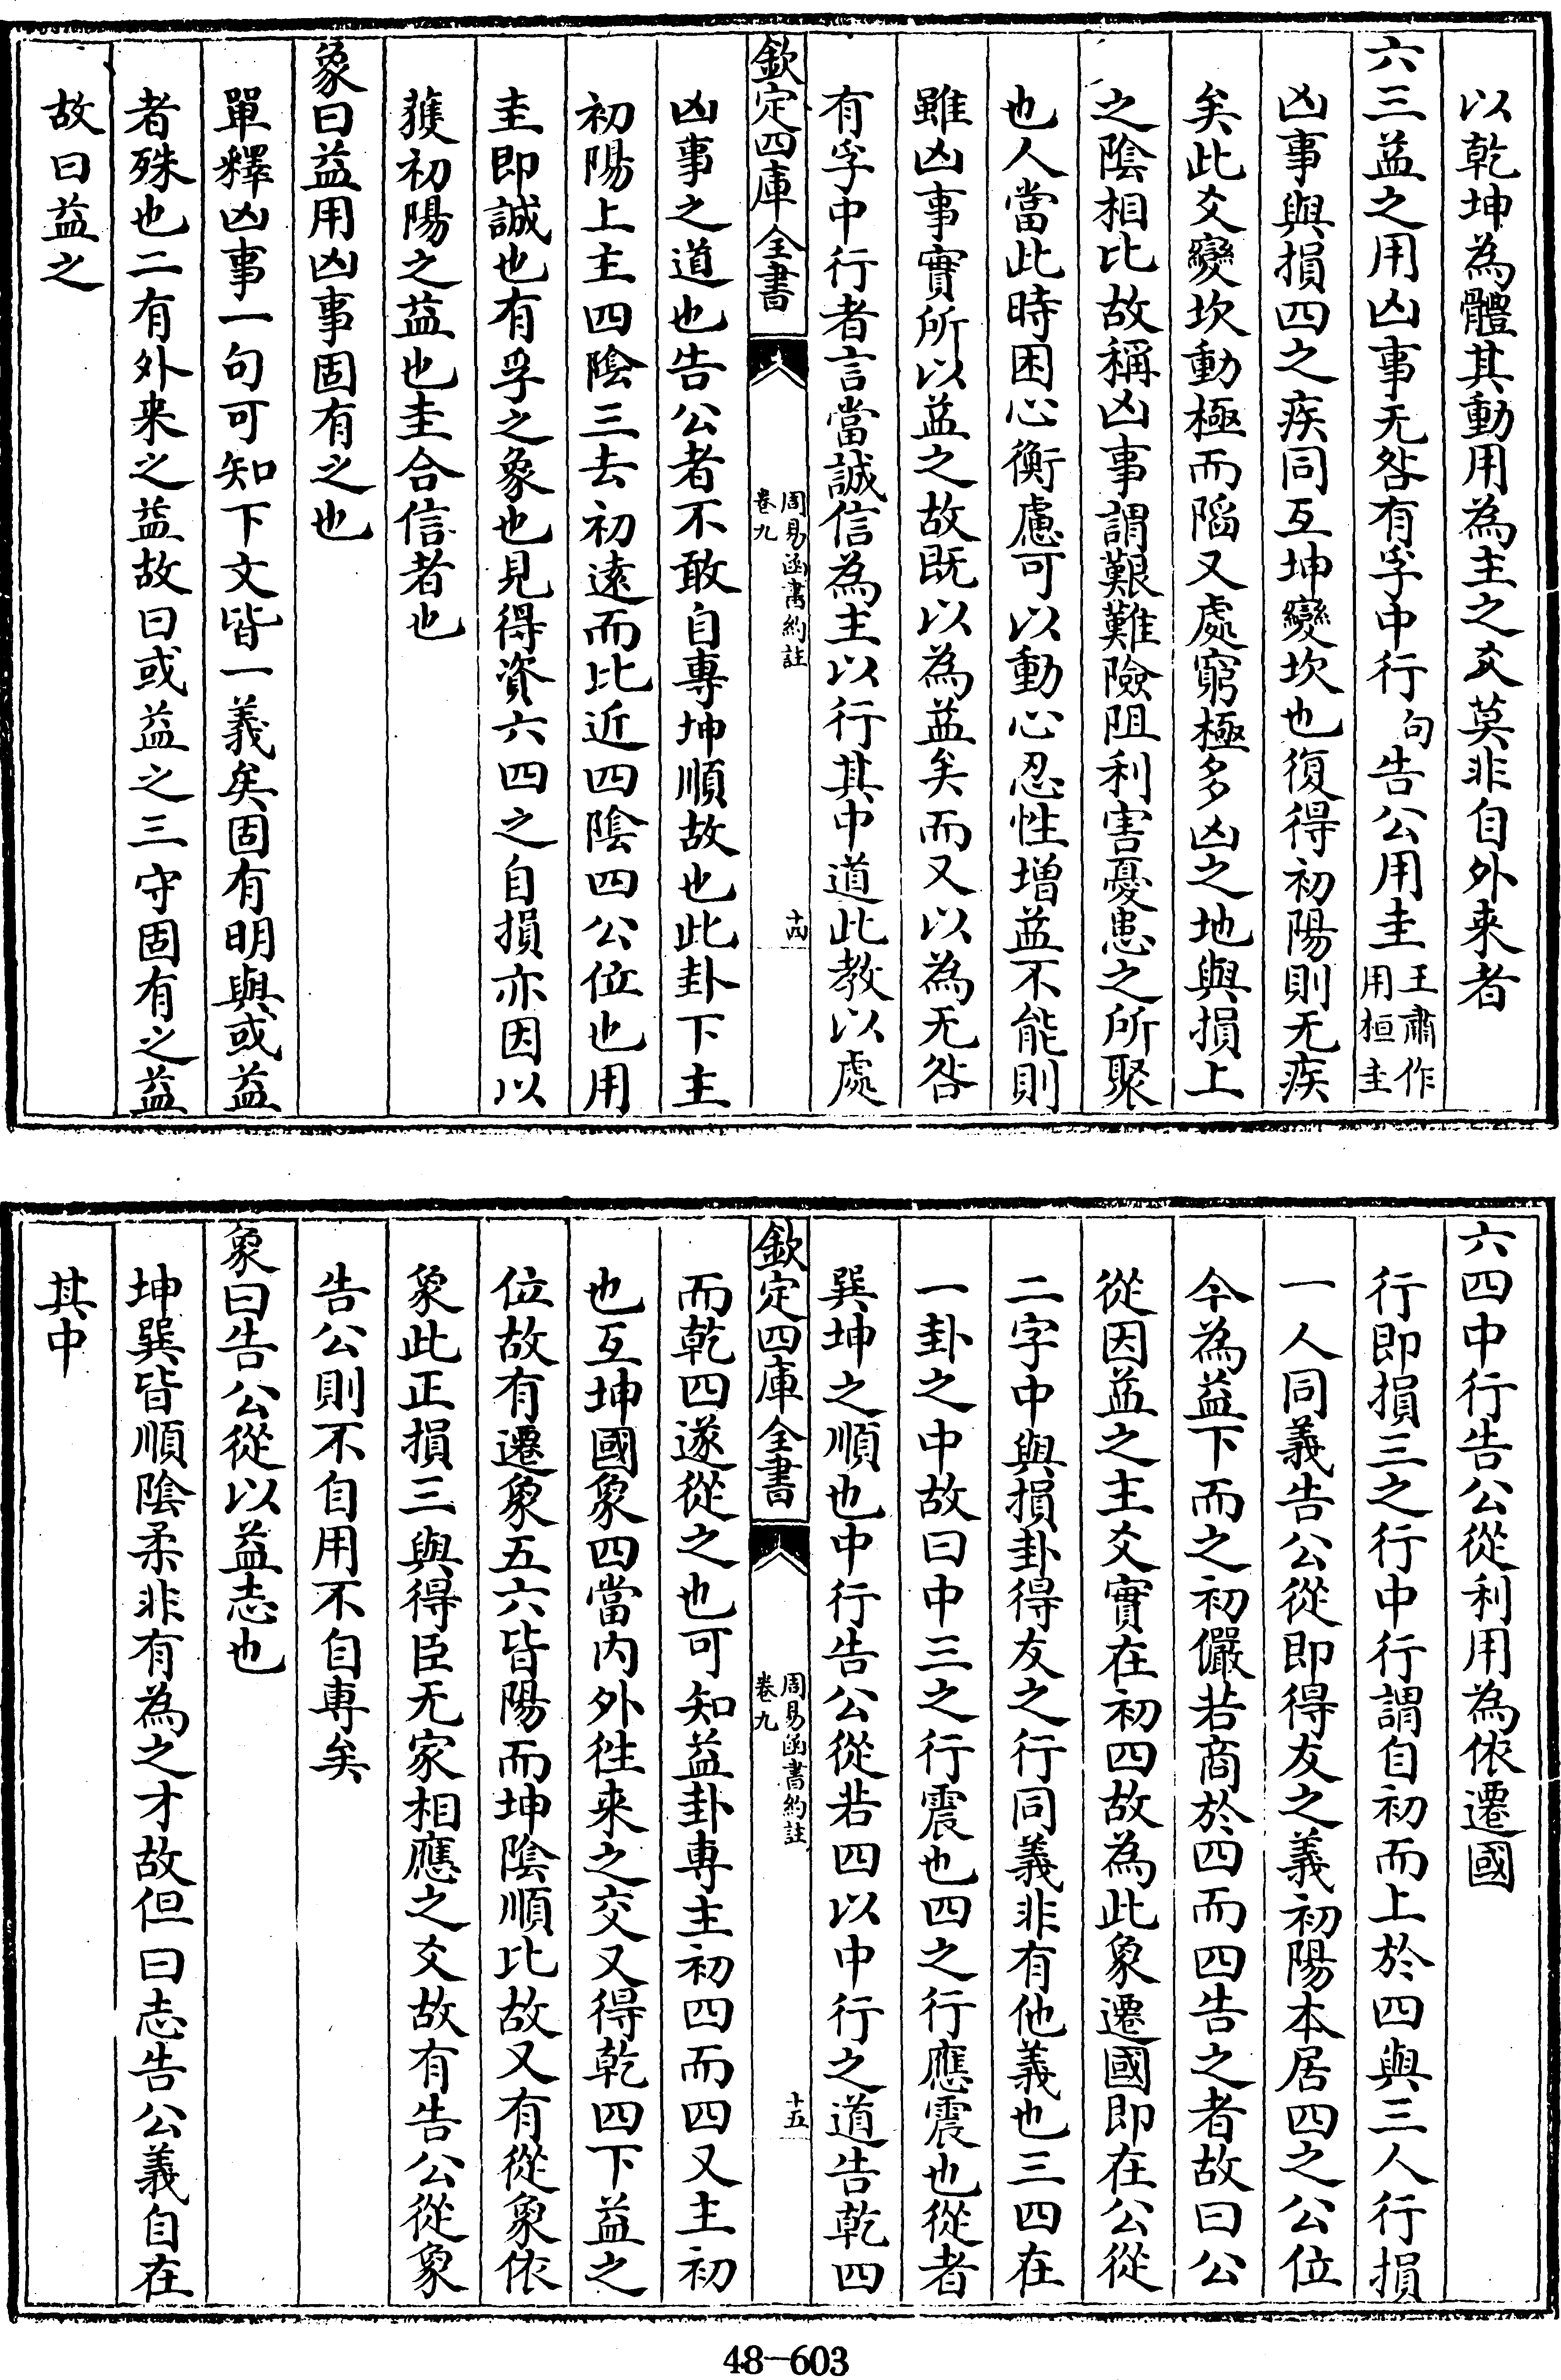 以乾坤為體其動用為主之爻莫非自外来者
六三益之用凶事无咎有孚中行句告公用圭王肅作用桓圭
凶事與損四之疾同互坤變坎也復得初陽則无疾
矣此爻變坎動極而陷又處窮極多凶之地與損上
之陰相比故稱凶事謂艱難險阻利害憂患之所聚
也人當此時困心衡慮可以動心忍性增益不能則
雖凶事實所以益之故既以為益矣而又以為无咎
有孚中行者言當誠信為主以行其中道此教以處
欽定四庫全書 周易函書約註卷九 十四
凶事之道也告公者不敢自專坤順故也此卦下主
初陽上主四陰三去初遠而比近四陰四公位也用
圭即誠也有孚之象也見得資六四之自損亦因以
獲初陽之益也圭合信者也
象曰益用凶事固有之也
單釋凶事一句可知下文皆一義矣固有明與或益
者殊也二有外来之益故曰或益之三守固有之益
故曰益之
六四中行告公從利用為依遷國
行即損三之行中行謂自初而上於四與三人行損
一人同義告公從即得友之義初陽本居四之公位
今為益下而之初儼若商於四而四告之者故曰公
從因益之主爻實在初四故為此象遷國即在公從
二字中與損卦得友之行同義非有他義也三四在
一卦之中故曰中三之行震也四之行應震也從者
巽坤之順也中行告公從若四以中行之道告乾四
欽定四庫全書 周易函書約註卷九 十五
而乾四遂從之也可知益卦專主初四而四又主初
也互坤國象四當内外徃来之交又得乾四下益之
位故有遷象五六皆陽而坤陰順比故又有從象依
象此正損三與得臣无家相應之爻故有告公從象
告公則不自用不自專矣
象曰告公從以益志也
坤巽皆順陰柔非有為之才故但曰志告公義自在
其中
48-603